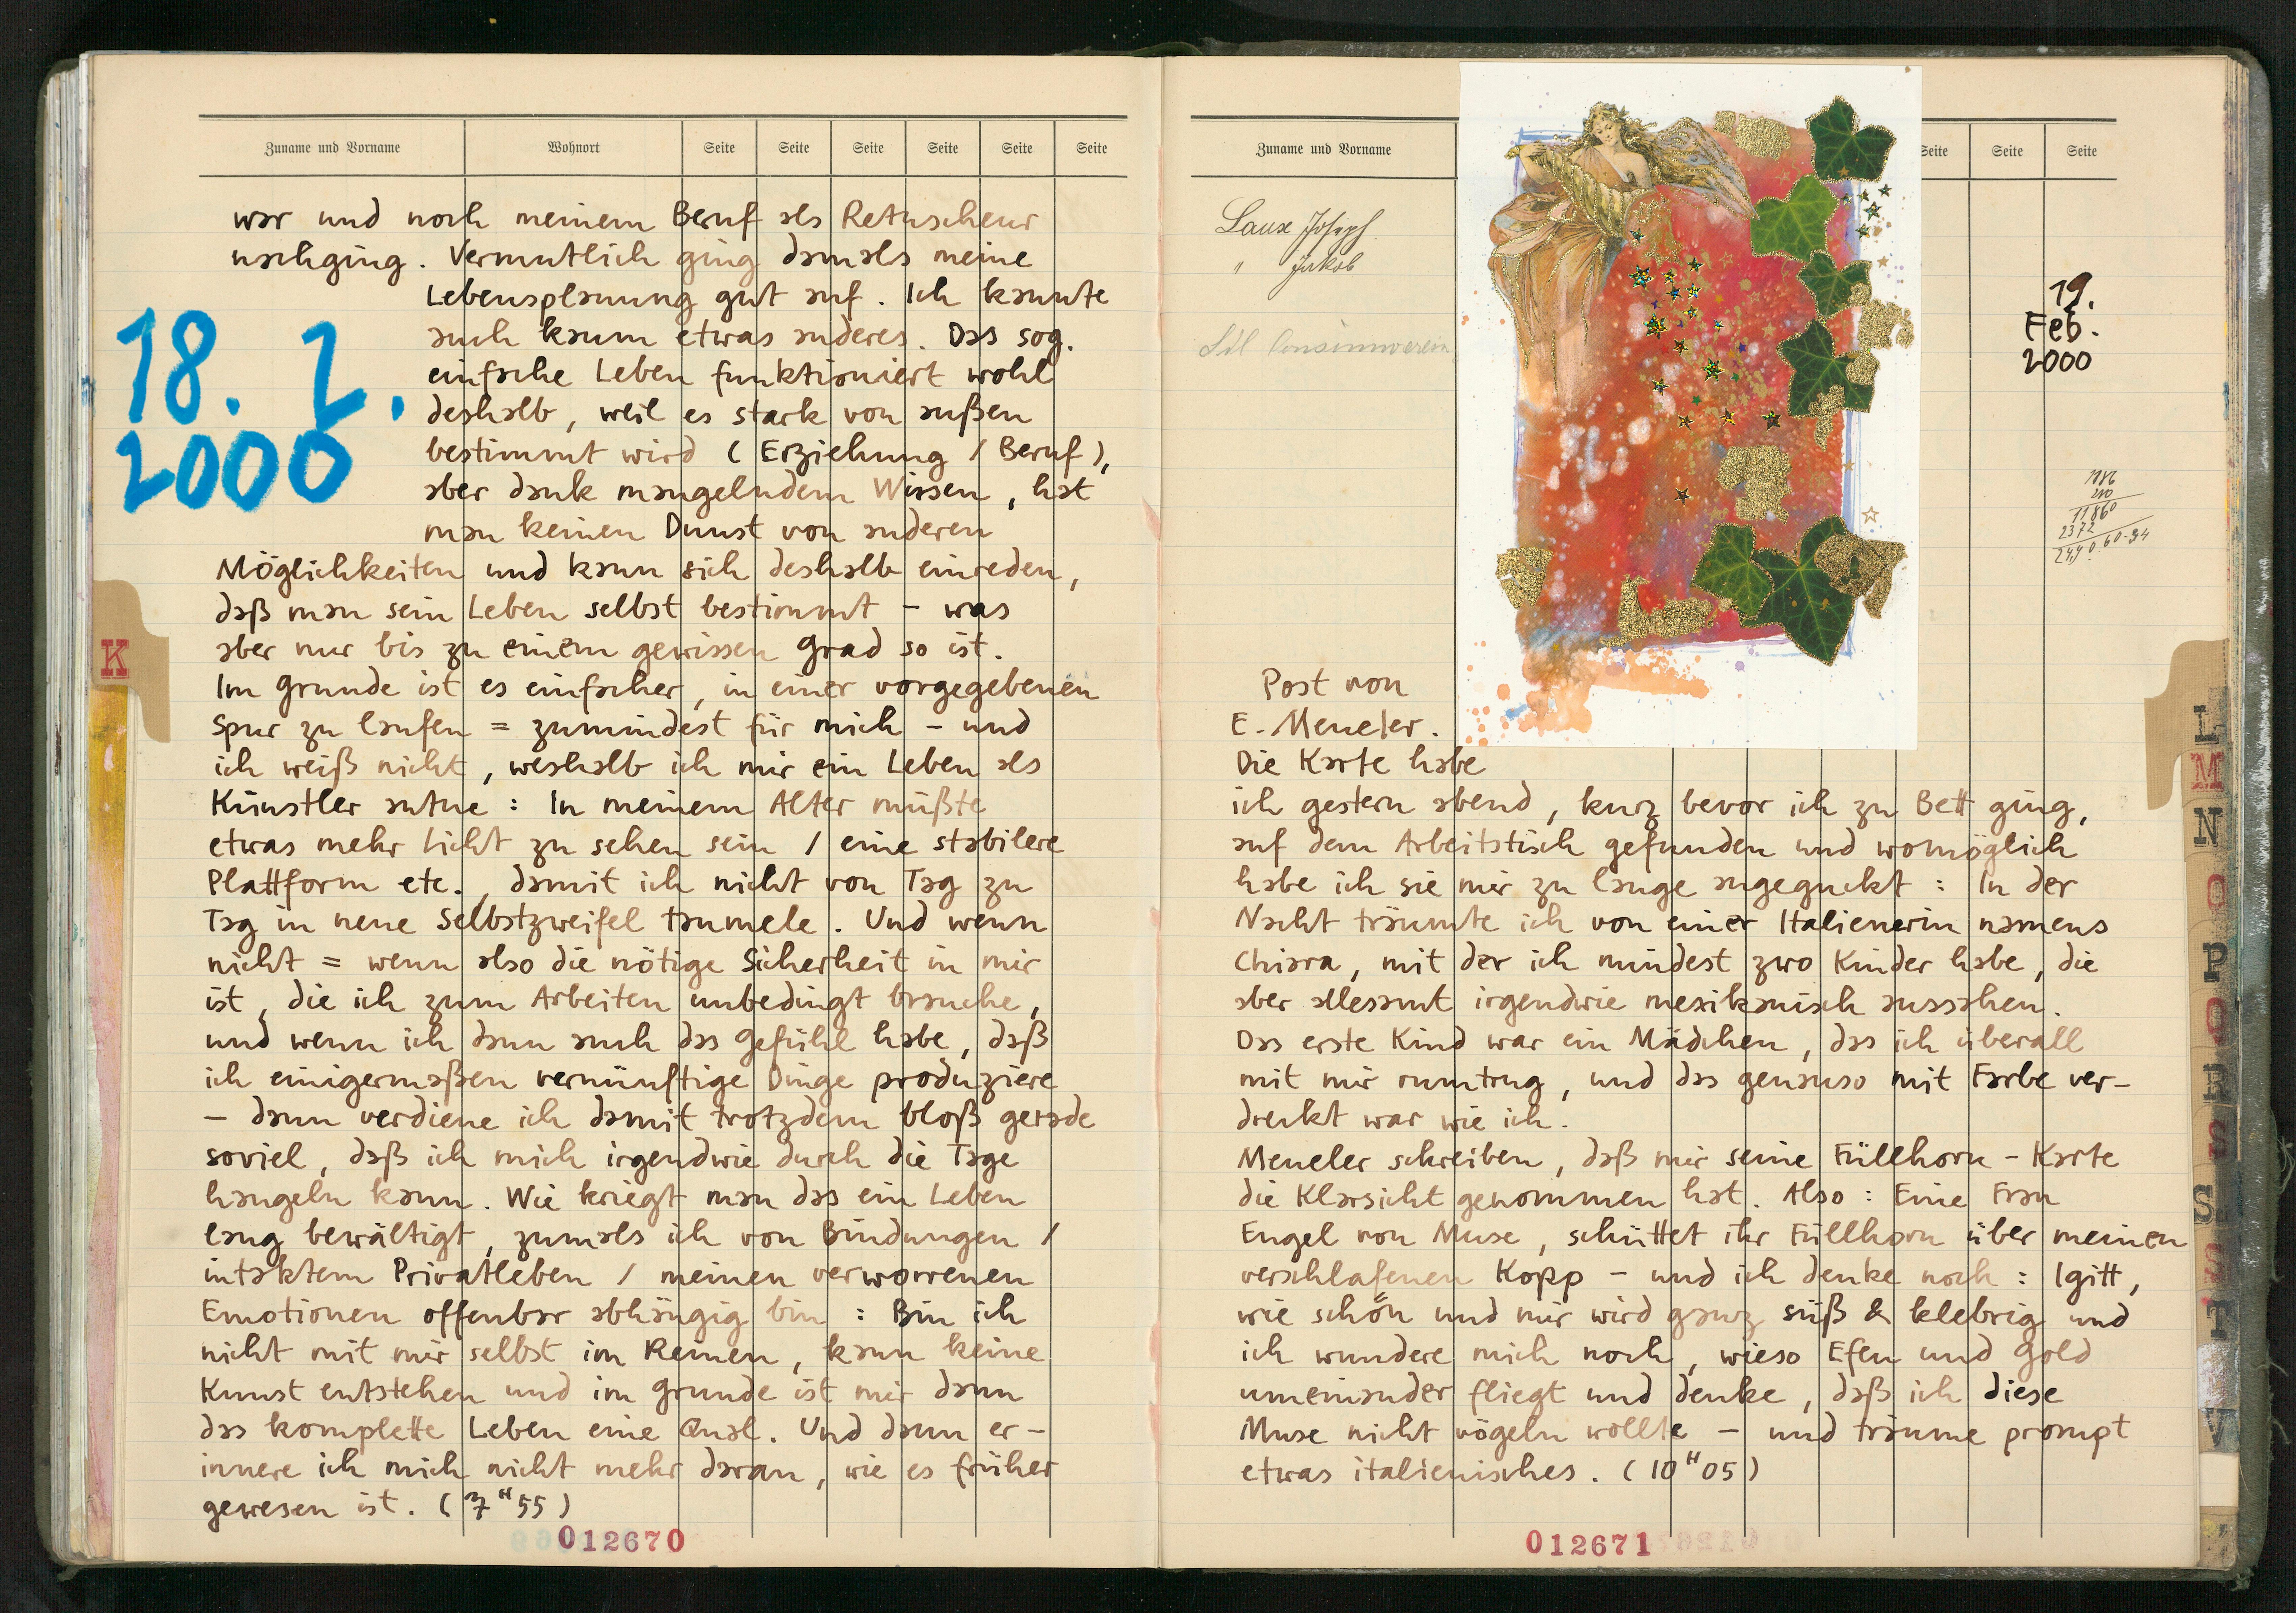 Zuname und Vorname Wohnort Seite Seite Seite Seite Seite Seite
war und noch meinem Beruf als Retuscheur
nachging. Vermutlich ging damals meine
Lebensplanung gut auf. Ich kannte
auch kaum etwas anderes. Das sog.
einfache Leben funktioniert wohl
deshalb, weil es stark von außen
bestimmt wird (Erziehung / Beruf),
aber dank mangelndem Wissen, hat
man keinen Dunst von anderen
18. 2.
2000
Möglichkeiten und kann sich deshalb einreden,
daß man sein Leben selbst bestimmt – was
aber nur bis zu einem gewissen Grad so ist.
Im Grunde ist es einfacher, in einer vorgegebenen
Spur zu laufen = zumindest für mich – und
ich weiß nicht, weshalb ich mir ein Leben als
Künstler antue: In meinem Alter müßte
etwas mehr Licht zu sehen sein / eine stabilere
Plattform etc., damit ich nicht von Tag zu
Tag in neue Selbstzweifel taumele. Und wenn
nicht = wenn also die nötige Sicherheit in mir
ist, die ich zum Arbeiten unbedingt brauche,
und wenn ich dann auch das Gefühl habe, daß
ich einigermaßen vernünftige Dinge produziere
– dann verdiene ich damit trotzdem bloß gerade
soviel, daß ich mich irgendwie durch die Tage
hangeln kann. Wie kriegt man das ein Leben
lang bewältigt, zumals ich von Bindungen /
intaktem Privatleben / meinen verworrenen
Emotionen offenbar abhängig bin: Bin ich
nicht mit mir selbst im Reinen, kann keine
Kunst entstehen und im Grunde ist mir dann
das komplette Leben eine Qual. Und dann er-
innere ich mich nicht mehr daran, wie es früher
gewesen ist. (7H55)
012670
K
Zuname und Vorname Seite Seite Seite
Laux Joseph
" Jakob
19.
Feb.
2000
1186
210
11860
2372
Post von
E. Meneler.
Die Karte habe
ich gestern abend, kurz bevor ich zu Bett ging,
auf dem Arbeitstisch gefunden und womöglich
habe ich sie mir zu lange angeguckt: In der
Nacht träumte ich von einer Italienerin namens
Chiara, mit der ich mindest zwo Kinder habe, die
aber allesamt irgendwie mexikanisch aussahen.
Das erste Kind war ein Mädchen, das ich überall
mit mir rumtrug, und das genauso mit Farbe ver-
dreckt war wie ich.
Meneler schreiben, daß mir seine Füllhorn-Karte
die Klarsicht genommen hat. Also: Eine Frau
Engel von Muse, schüttet ihr Füllhorn über meinen
verschlafenen Kopp – und ich denke noch: Igitt,
wie schön und mir wird ganz süß & klebrig und
ich wundere mich noch, wieso Efeu und Gold
umeinander fliegt und denke, daß ich diese
Muse nicht vögeln wollte – und träume prompt
etwas italienisches. (10H05)
012671
L
M
N
O
P
Q
R
S
S
S
T
V